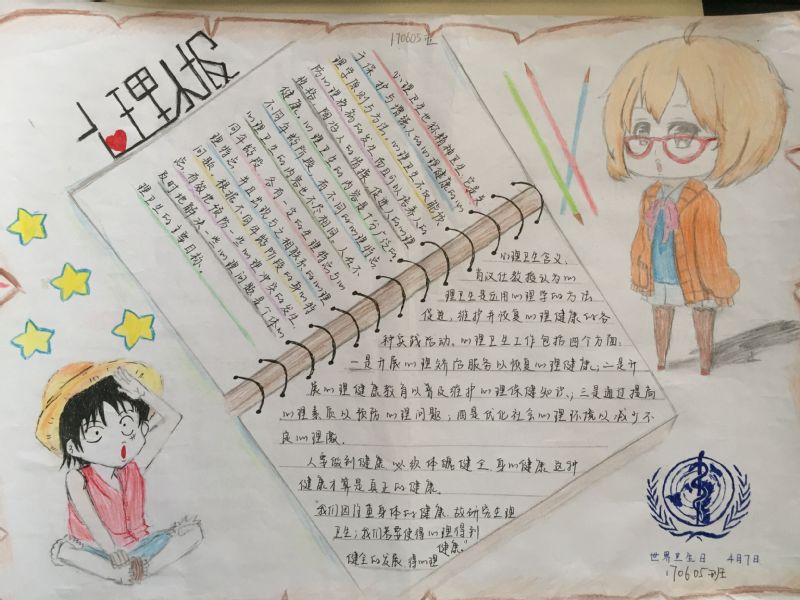 170605班
心理小报
心理卫生也称精神卫生,它是关
于保护与增强人的心理健康的心
理学原则与方法。心理卫生不仅能预
防心理疾病的发生,而且可以培养人的
性格,陶冶人的情操,促进人的心理
健康。心理卫生的内容是十分广泛的,
不同年龄阶段,有不同的心理特点,
心理卫生的内容也不尽相同。人在不
同年龄阶段,各有一定的生理特点与心
理特点,并且出现与之相联系的心理
问题。根据不同年龄阶段的身心特
点,有效地预防一些心理冲突的发生,
及时地解决一些心理问题是个体心
理卫生的主要目标。
心理卫生含义.
肖汉仕教授认为心
理卫生是应用心理学的方法
促进,维护并恢复心理健康的各
种实践活动。心理卫生工作包括四个方面:
一是开展心理矫治服务以恢复心理健康;二是开
展心理健康教育以普及维护心理保健知识;三是通过提高
心理素质以预防心理问题;四是优化社会心理环境以减少不
良心理源。
人要做到健康,必须体魄健全,身心健康,这种
健康才算是真正的健康。
"我们因注重身体的健康,故研究生理
卫生;我们若要使得心理得到
健全的发展,得心理健康"
世界卫生日 4月7日
170605班